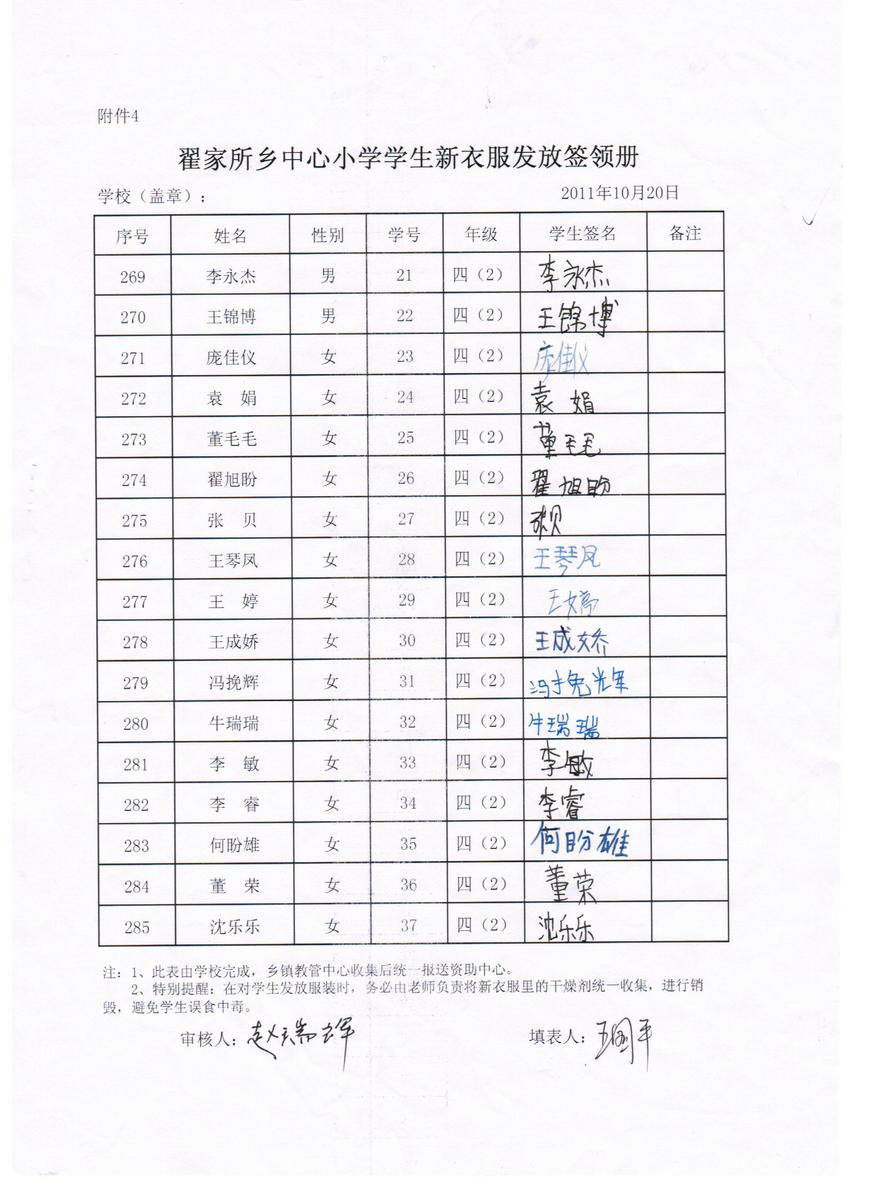 附件4
翟家所乡中心小学学生新衣服发放签领册
学校（盖章）： 2011年10月20日
序号 姓名 性别 学号 年级 学生签名 备注
269 李永杰 男 21 四（2） 李永杰
270 王锦博 男 22 四（2） 王锦博
271 庞佳仪 女 23 四（2） 庞佳仪
272 袁 娟 女 24 四（2） 袁娟
273 董毛毛 女 25 四（2） 董毛毛
274 翟旭盼 女 26 四（2） 翟旭盼
275 张 贝 女 27 四（2） 张贝
276 王琴凤 女 28 四（2） 王琴凤
277 王 婷 女 29 四（2） 王婷
278 王成娇 女 30 四（2） 王成娇
279 冯挽辉 女 31 四（2） 冯挽辉
280 牛瑞瑞 女 32 四（2） 牛瑞瑞
281 李 敏 女 33 四（2） 李敏
282 李 睿 女 34 四（2） 李睿
283 何盼雄 女 35 四（2） 何盼雄
284 董 荣 女 36 四（2） 董荣
285 沈乐乐 女 37 四（2） 沈乐乐
注：1、此表由学校完成，乡镇教管中心收集后统一报送资助中心。
2、特别提醒：在对学生发放服装时，务必由老师负责将新衣服里的干燥剂统一收集，进行销
毁，避免学生误食中毒。
审核人： 填表人：